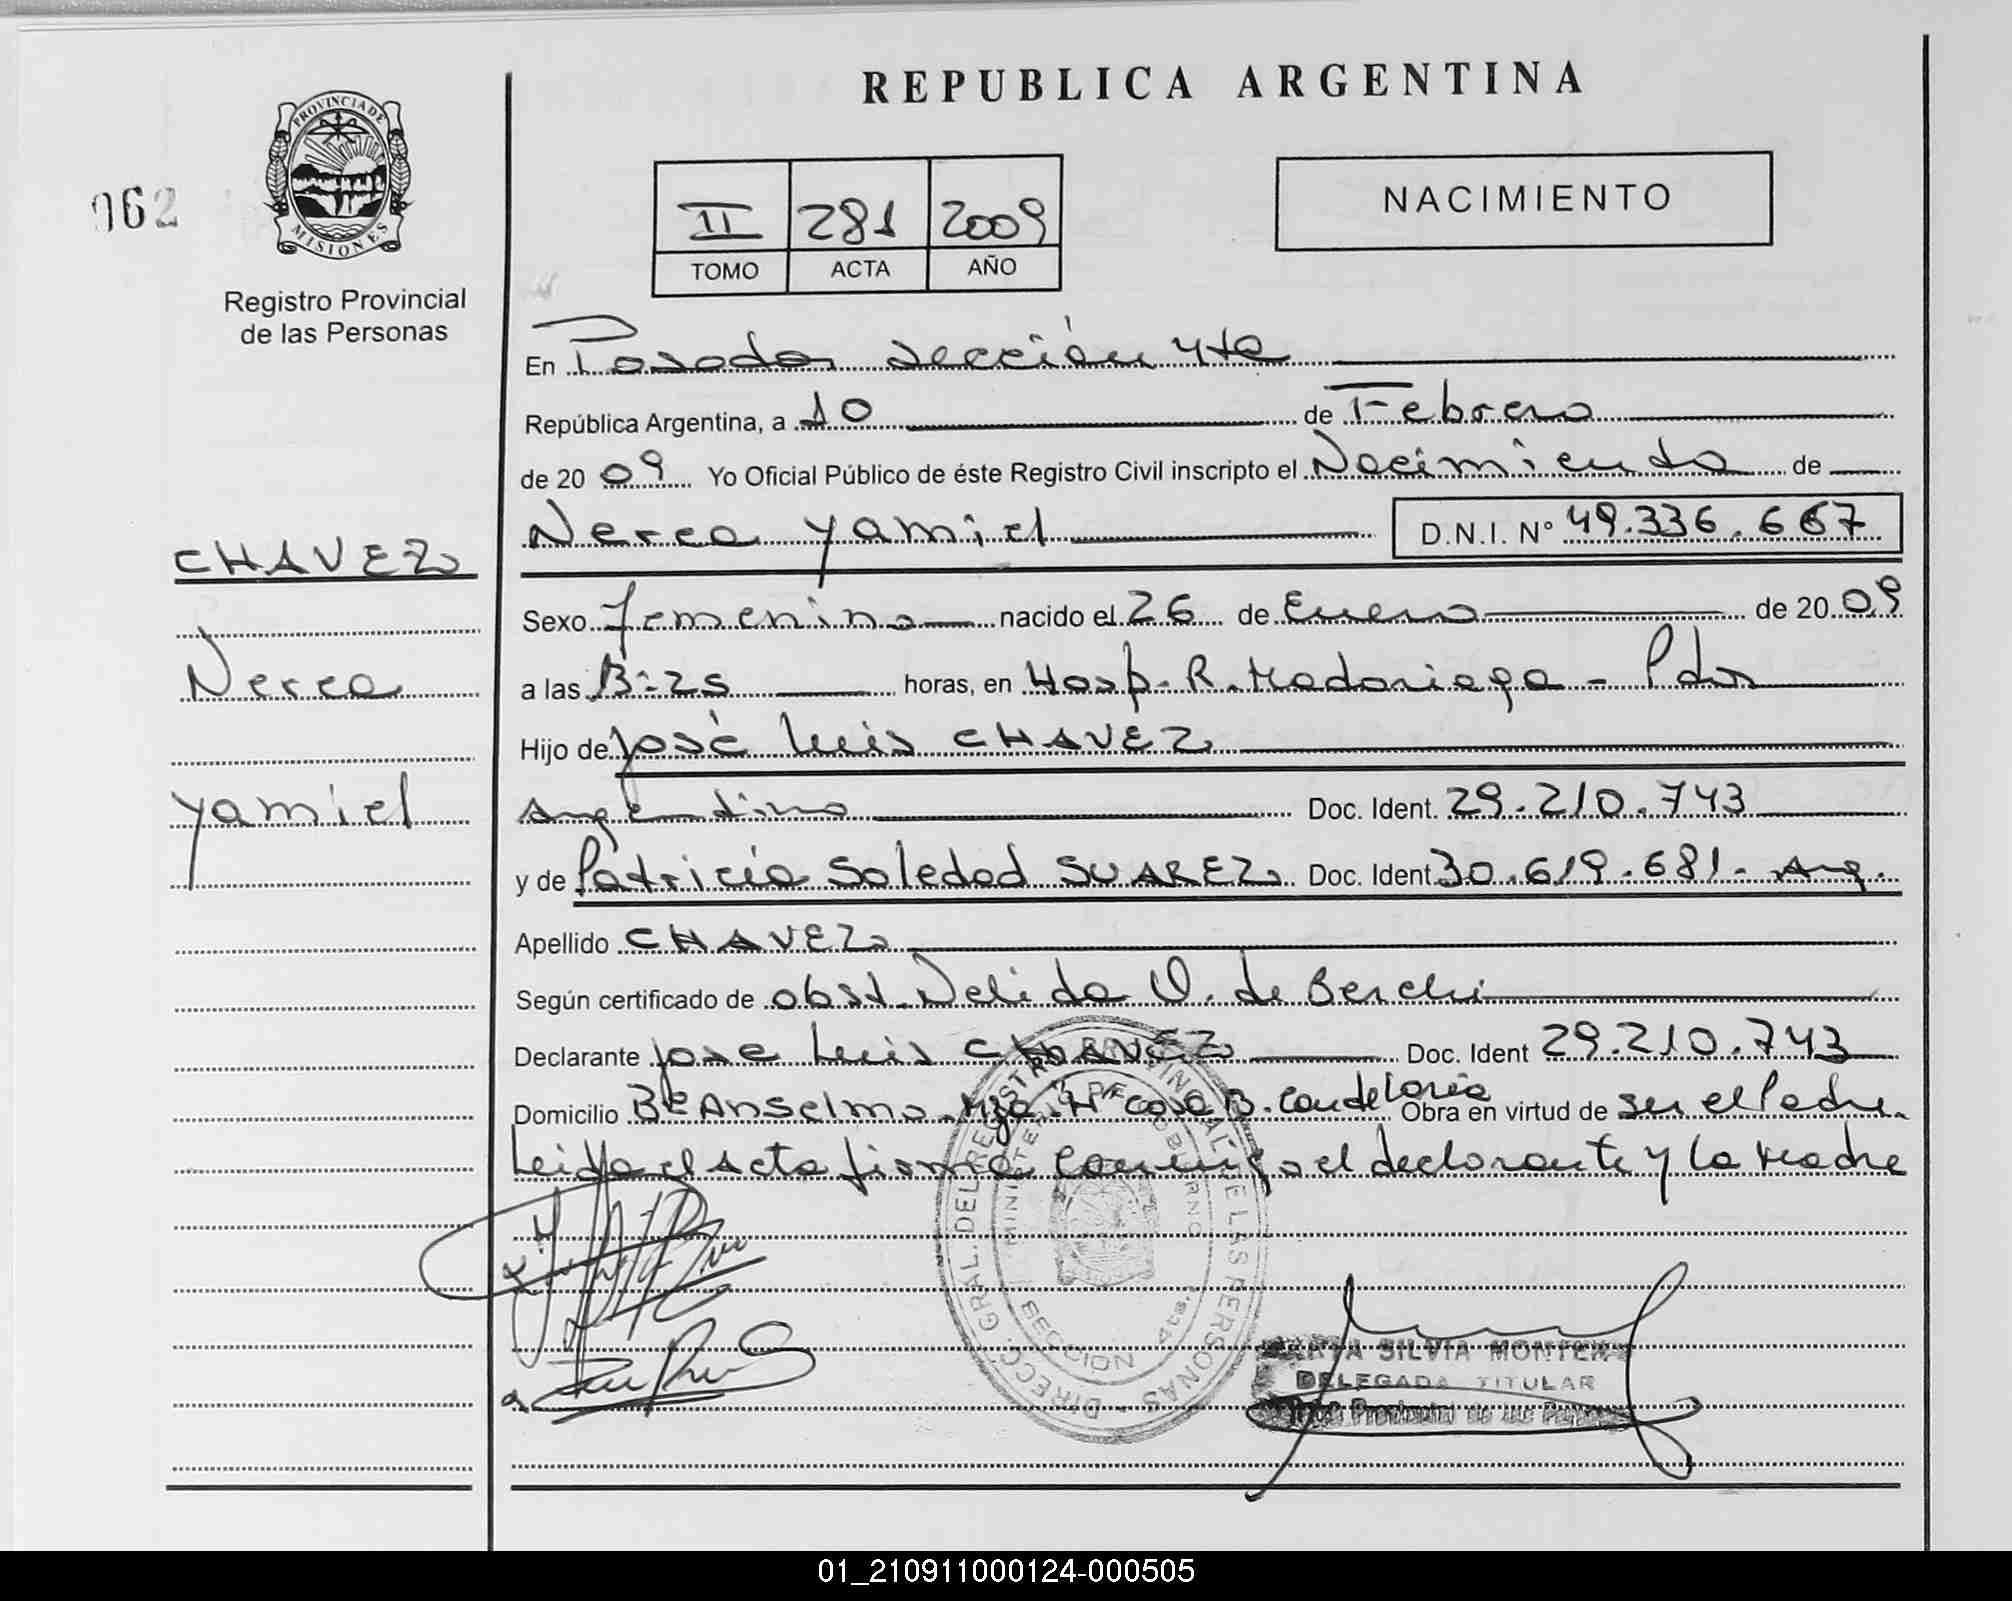 REPUBLICA ARGENTINA
PROVINCIA DE MISIONES
062
Registro Provincial
de las Personas
II 281 2009
TOMO ACTA AÑO
NACIMIENTO
En Posadas sección 4ta
República Argentina, a 10 de Febrero
de 20 09 Yo Oficial Público de éste Registro Civil inscripto el Nacimiento de
Nerea Yamiel D.N.I. Nº 49.336.667
CHAVEZ
Nerea
Yamiel
Sexo Femenino nacido el 26 de Enero de 20 09
a las 13:25 horas, en Hosp. R. Madariaga - Pdas
Hijo de José Luis CHAVEZ
Argentino Doc. Ident. 29.210.743
y de Patricia Soledad SUAREZ Doc. Ident 30.619.681- Arg.
Apellido CHAVEZ
Según certificado de obst. Nelida O. de Berchi
Declarante Jose Luis CHAVEZ Doc. Ident 29.210.743
Domicilio Bº Anselmo casa B. Candelaria Obra en virtud de ser el Padre
Leida el Acta firma conmigo el declarante y la Madre
DIRECC. GRAL. DEL REGISTRO PROVINCIAL DE LAS PERSONAS
MINISTERIO DE GOBIERNO
SECCION 4ta.
MARTA SILVIA MONTE
DELEGADA TITULAR
Provincial de las
01_210911000124-000505